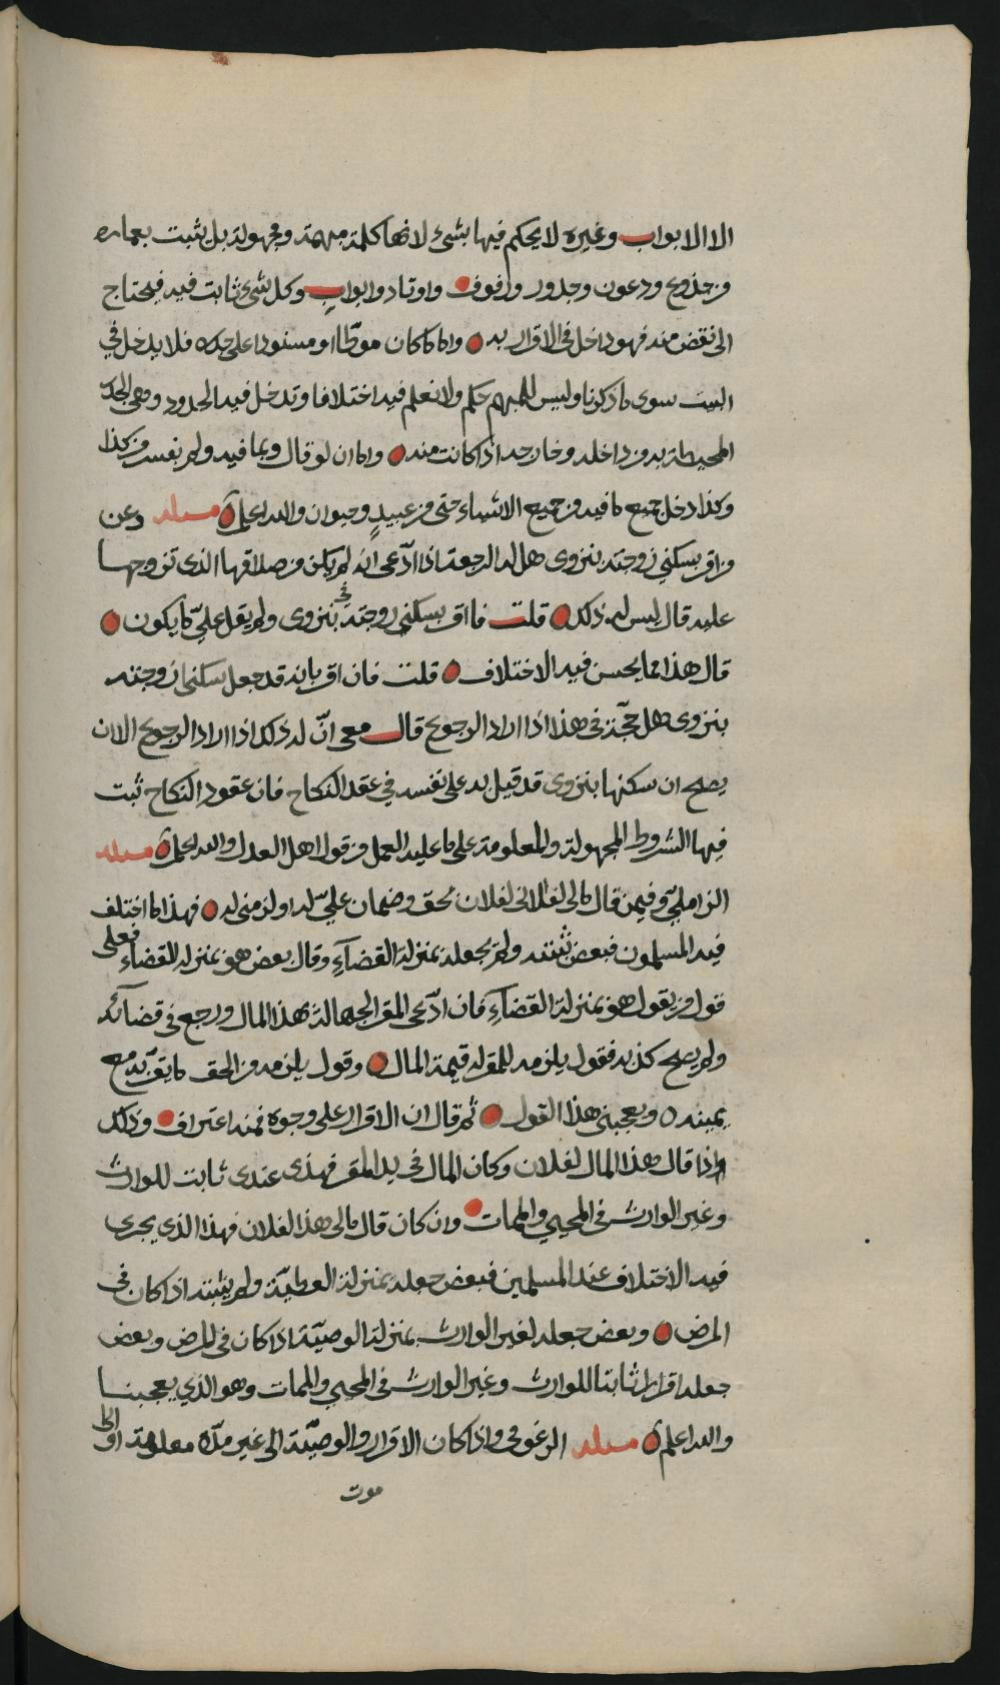 الا الابواب وغيره لا يحكم فيها بشيء لانها كلمة مبهمة ومجهولة بل يثبت بعماره
وجذوع ودعون وجدور وافوف واوتاد وابواب وكل شيء ثابت فيه فيحتاج
الى نقض منه فهو داخل في الاقرار به واما ما كان موطّا او مسنودا على جدره فلا يدخل في
البيت سوى ما ذكرنا وليس للمبهم حكم ولا نعلم فيه اختلافا وتدخل فيه الحدود وهي الجدر
المحيطة به من داخله وخارجه اذا كانت منه واما ان لو قال وبما فيه ولم يفسر من كذا
وكذا دخل جميع ما فيه من جميع الاشياء حتى من عبيدٍ وحيوان والله اعلم مسله وعن
من اقر بسكني زوجته بنزوى هل له الرجعة اذا ادّعى انه لم يكن من صداقها الذي تزوجها
عليه قال ليس له ذلك قلت فما اقر بسكني زوجته بنزوى ولم يقل عليّ ما يكون
قال هذا مما يحسن فيه الاختلاف قلت فان اقر بانه قد جعل سكنى زوجته
بنزوى هل حجّة في هذا اذا اراد الرجوع قال معي انّ له ذلك اذا اراد الرجوع الا ان
يصح ان سكنها بنزوى قد قبل به على نفسه في عقد النكاح فان عقود النكاح ثبت
فيها الشروط المجهولة والمعلومة على ما عليه العمل من قول اهل العدل والله اعلم مسله
الزاملي وفيمن قال مالي الفلاني لفلان بحق وضمان عليّ له او لزمني له فهذا ما اختلف
فيه المسلمون فبعض ثبته ولم يجعله بمنزلة القضآءِ وقال بعض هو بمنزلة القضاء فعلى
قول من يقول هو بمنزلة القضآءِ فان ادّعى المقر الجهالة بهذا المال ورجع في قضائه
ولم يصح كذبه فقول يلزمه للمقر له قيمة المال وقول يلزمه من الحق ما يقرّ به مع
يمينه ويعجبني هذا القول ثم قال ان الاقرار على وجوه فمنه اعتراف وذلك
اذا قال هذا المال لفلان وكان المال في يد المقر فهذى عندى ثابت للوارث
وغير الوارث في المحيي والممات وان كان قال مالي هذا لفلان فهذا الذي يجرى
فيه الاختلاف عند المسلمين فبعض جعله بمنزلة العطيّة ولم يثبته اذا كان في
المرض وبعض جعله لغير الوارث بمنزلة الوصيّة اذا كان في المرض وبعض
جعله اقرارا ثابتا للوارث وغير الوارث في المحيي والممات وهو الذي يعجبنا
والله اعلم مسله الرغومي واذا كان الاقرار والوصيّة الى غير مدّة معلومة او الى
موت